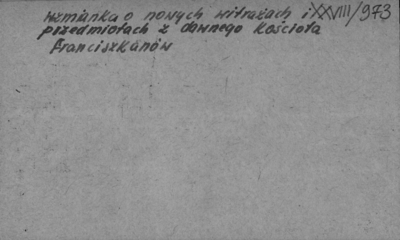 wzmianka o nowych witrażach i XXVIII/973
przedmiotach z dawnego Kościoła
Franciszkanów